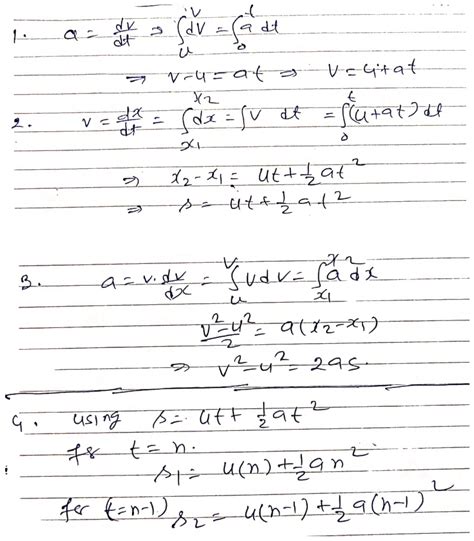 1. a = dv/dt ⇒ ∫_u^v dv = ∫_0^t a dt
⇒ v-u = at ⇒ v = u+at
2. v = dx/dt = ∫_{x1}^{x2} dx = ∫v dt = ∫_0^t (u+at) dt
⇒ x2-x1 = ut+½at²
⇒ s = ut+½at²
3. a = v.dv/dx = ∫_u^v vdv = ∫_{x1}^{x2} a dx
v²-u²/2 = a(x2-x1)
⇒ v²-u² = 2as.
4. using s = ut+½at²
for t = n.
s1 = u(n)+½an²
for (t=n-1) s2 = u(n-1)+½a(n-1)²